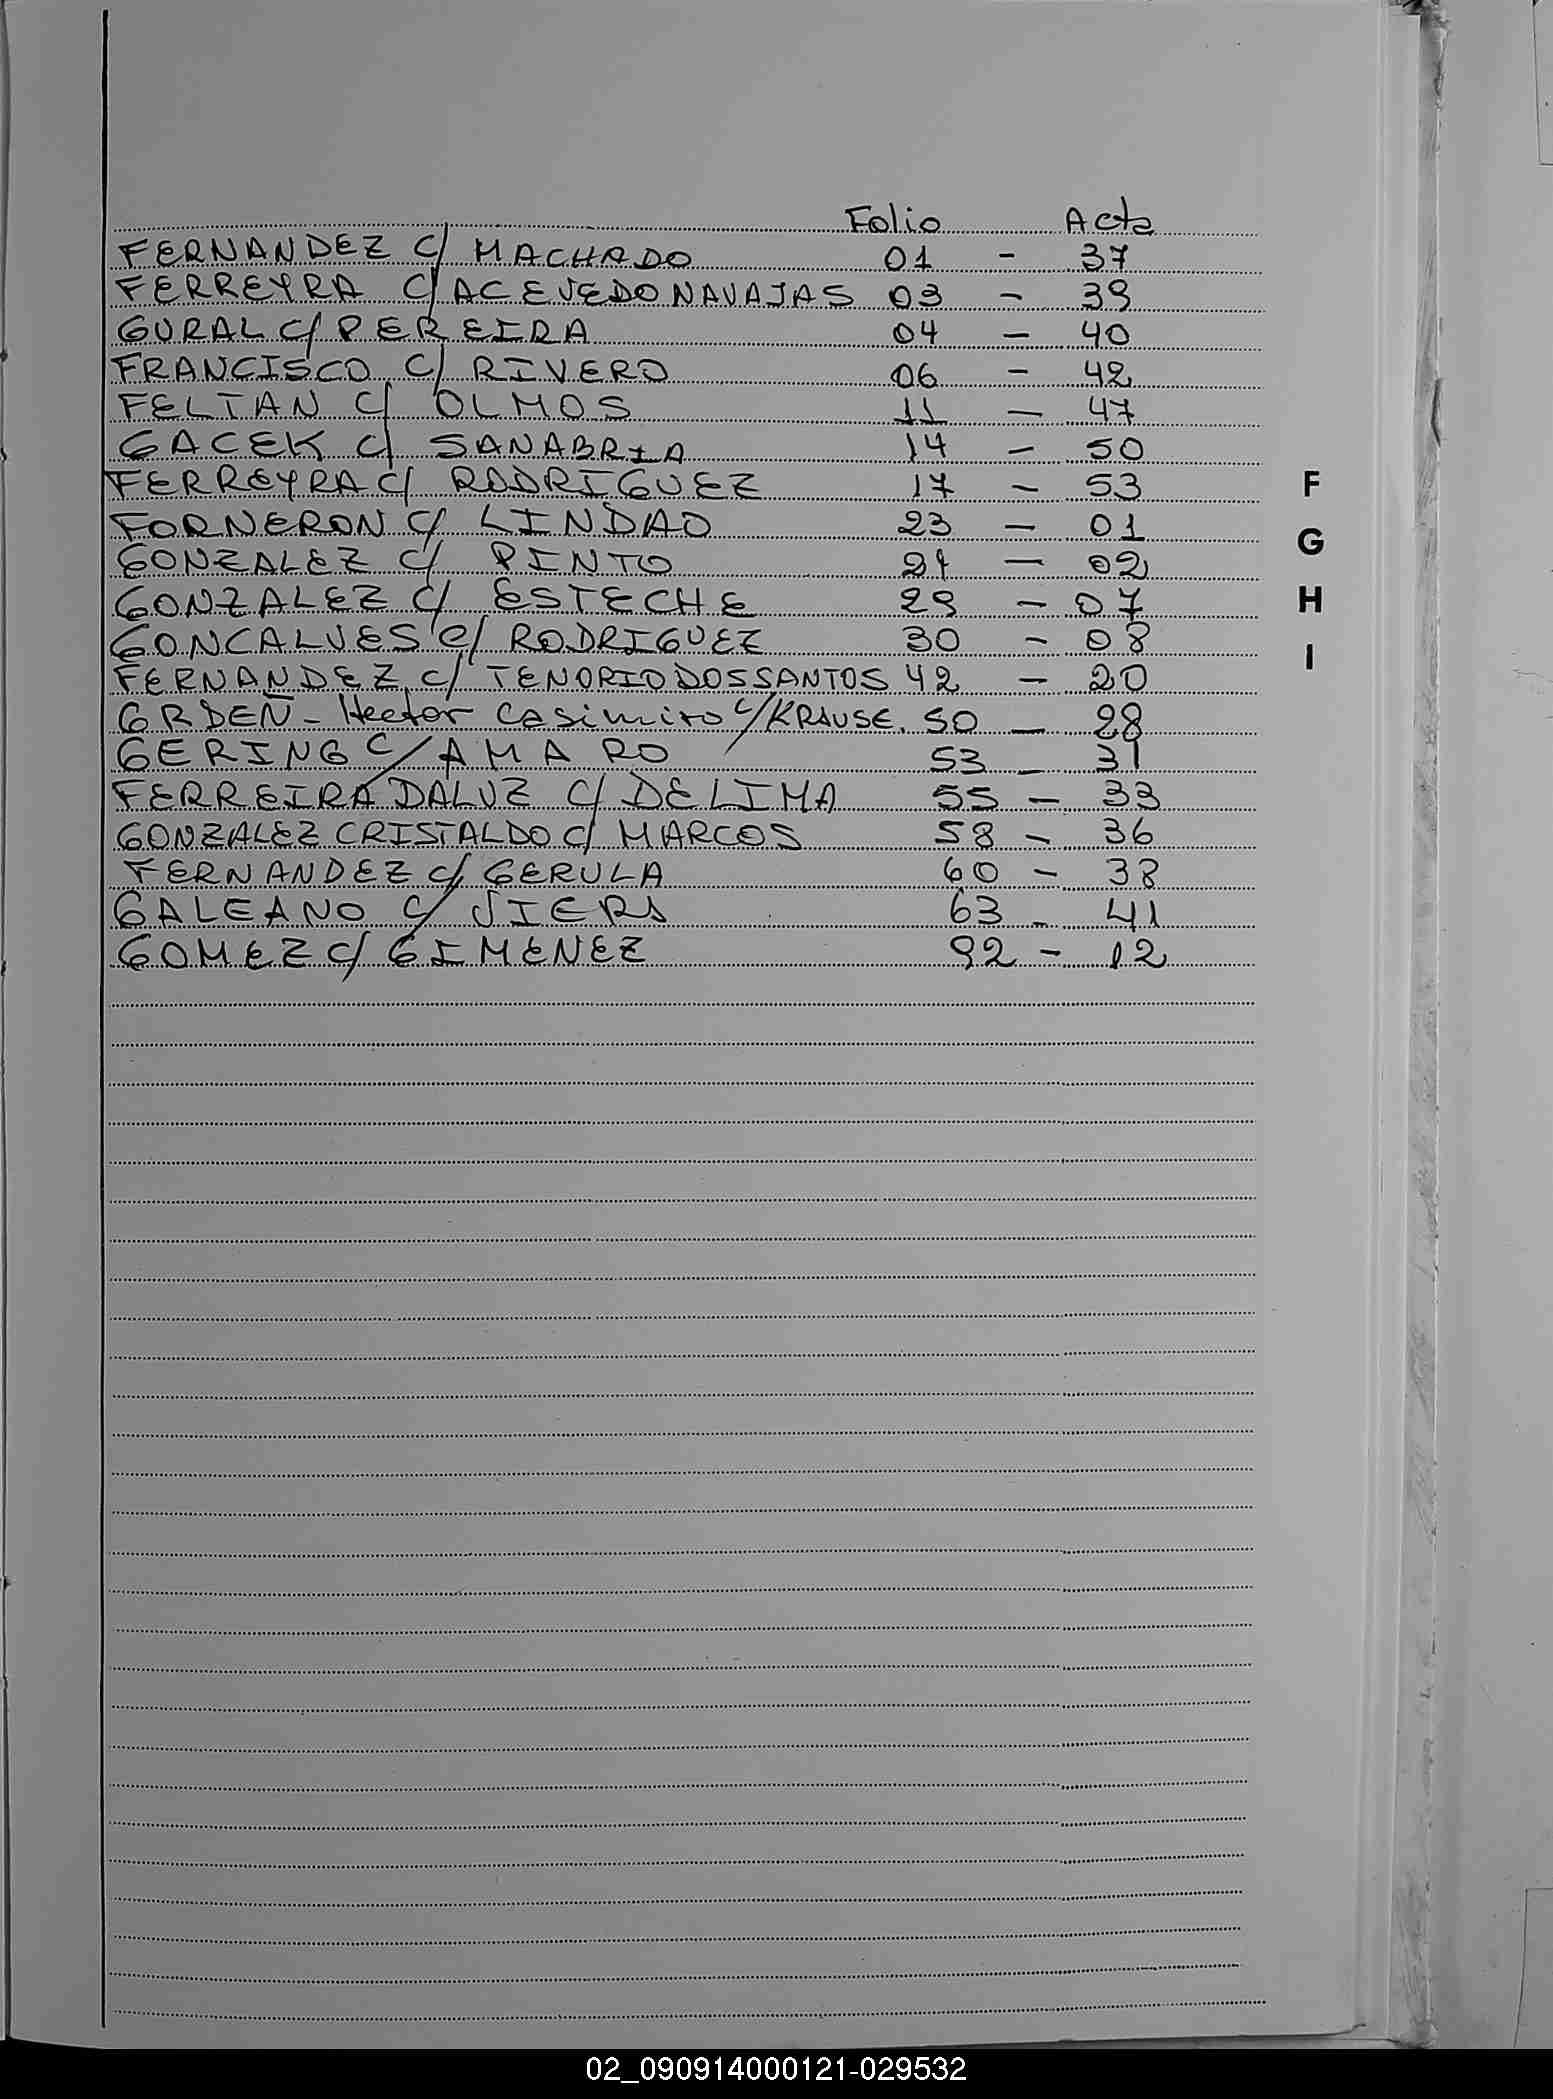 Folio Acta
FERNANDEZ C/ MACHADO 01 - 37
FERREYRA C/ ACEVEDO NAVAJAS 03 - 39
GURAL C/ PEREIRA 04 - 40
FRANCISCO C/ RIVERO 06 - 42
FELTAN C/ OLMOS 11 - 47
GACEK C/ SANABRIA 14 - 50
FERREYRA C/ RODRIGUEZ 17 - 53
F
FORNERON C/ LINDAO 23 - 01
G
GONZALEZ C/ PINTO 24 - 02
GONZALEZ C/ ESTECHE 29 - 07
H
GONCALVES C/ RODRIGUEZ 30 - 08
I
FERNANDEZ C/ TENORIO DOS SANTOS 42 - 20
GRDEÑ - Hector Casimiro C/ KRAUSE. 50 - 28
GERING C/ AMARO 53 - 31
FERREIRA DALUZ C/ DELIMA 55 - 33
GONZALEZ CRISTALDO C/ MARCOS 58 - 36
FERNANDEZ C/ GERULA 60 - 38
GALEANO C/ 63 - 41
GOMEZ C/ GIMENEZ 92 - 12
02_090914000121-029532